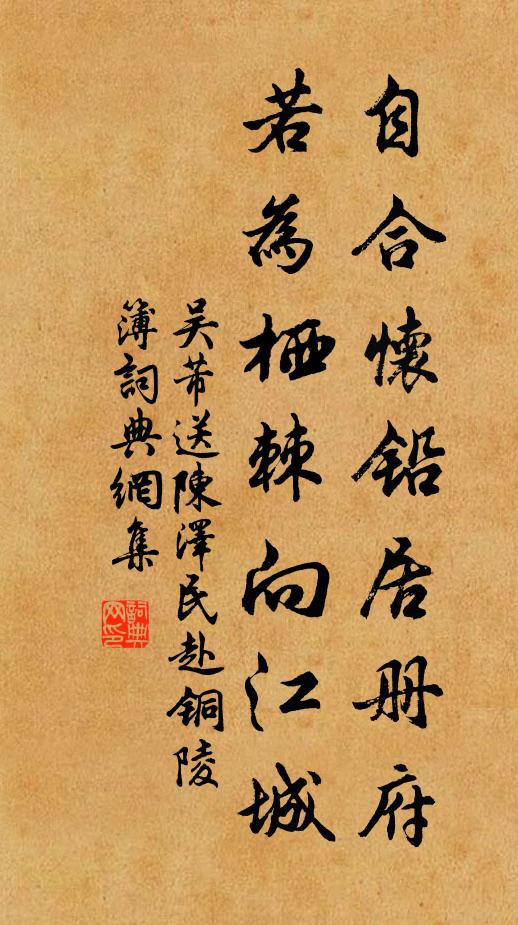 自合懷鉛居册府
若為栖棘向江城
吴芾送陳澤民赴铜陵
簿詞典網集
詞典网印